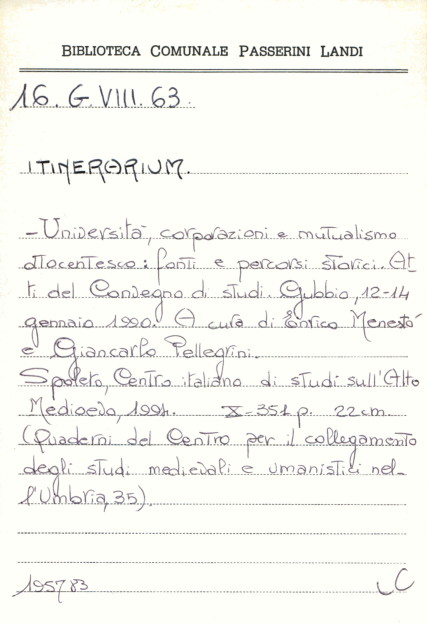 BIBLIOTECA COMUNALE PASSERINI LANDI
16. G. VIII. 63.
ITINERARIUM.
- Università, corporazioni e mutualismo
ottocentesco: fonti e percorsi storici. At
ti del Convegno di studi. Gubbio, 12-14
gennaio 1990. A cura di Enrico Menestò
e Giancarlo Pellegrini.
Spoleto, Centro italiano di studi sull'Alto
Medioevo, 1994. X-351 p. 22 cm.
(Quaderni del Centro per il collegamento
degli studi medievali e umanistici nel-
l'Umbria, 35).
195783